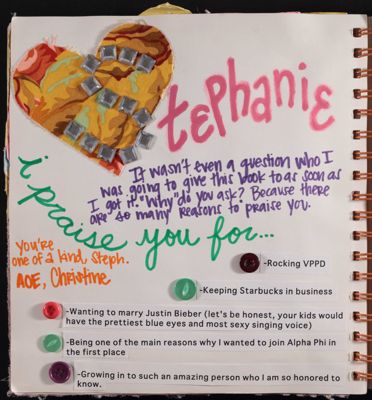 Stephanie
It wasn't even a question who I
was going to give this book to as soon as
I got it. "Why" do you ask? Because there
are so many reasons to praise you.
i praise you for...
You're
one of a kind, Steph.
AOE, Christine
-Rocking VPPD
-Keeping Starbucks in business
-Wanting to marry Justin Bieber (let's be honest, your kids would
have the prettiest blue eyes and most sexy singing voice)
-Being one of the main reasons why I wanted to join Alpha Phi in
the first place
-Growing in to such an amazing person who I am so honored to
know.